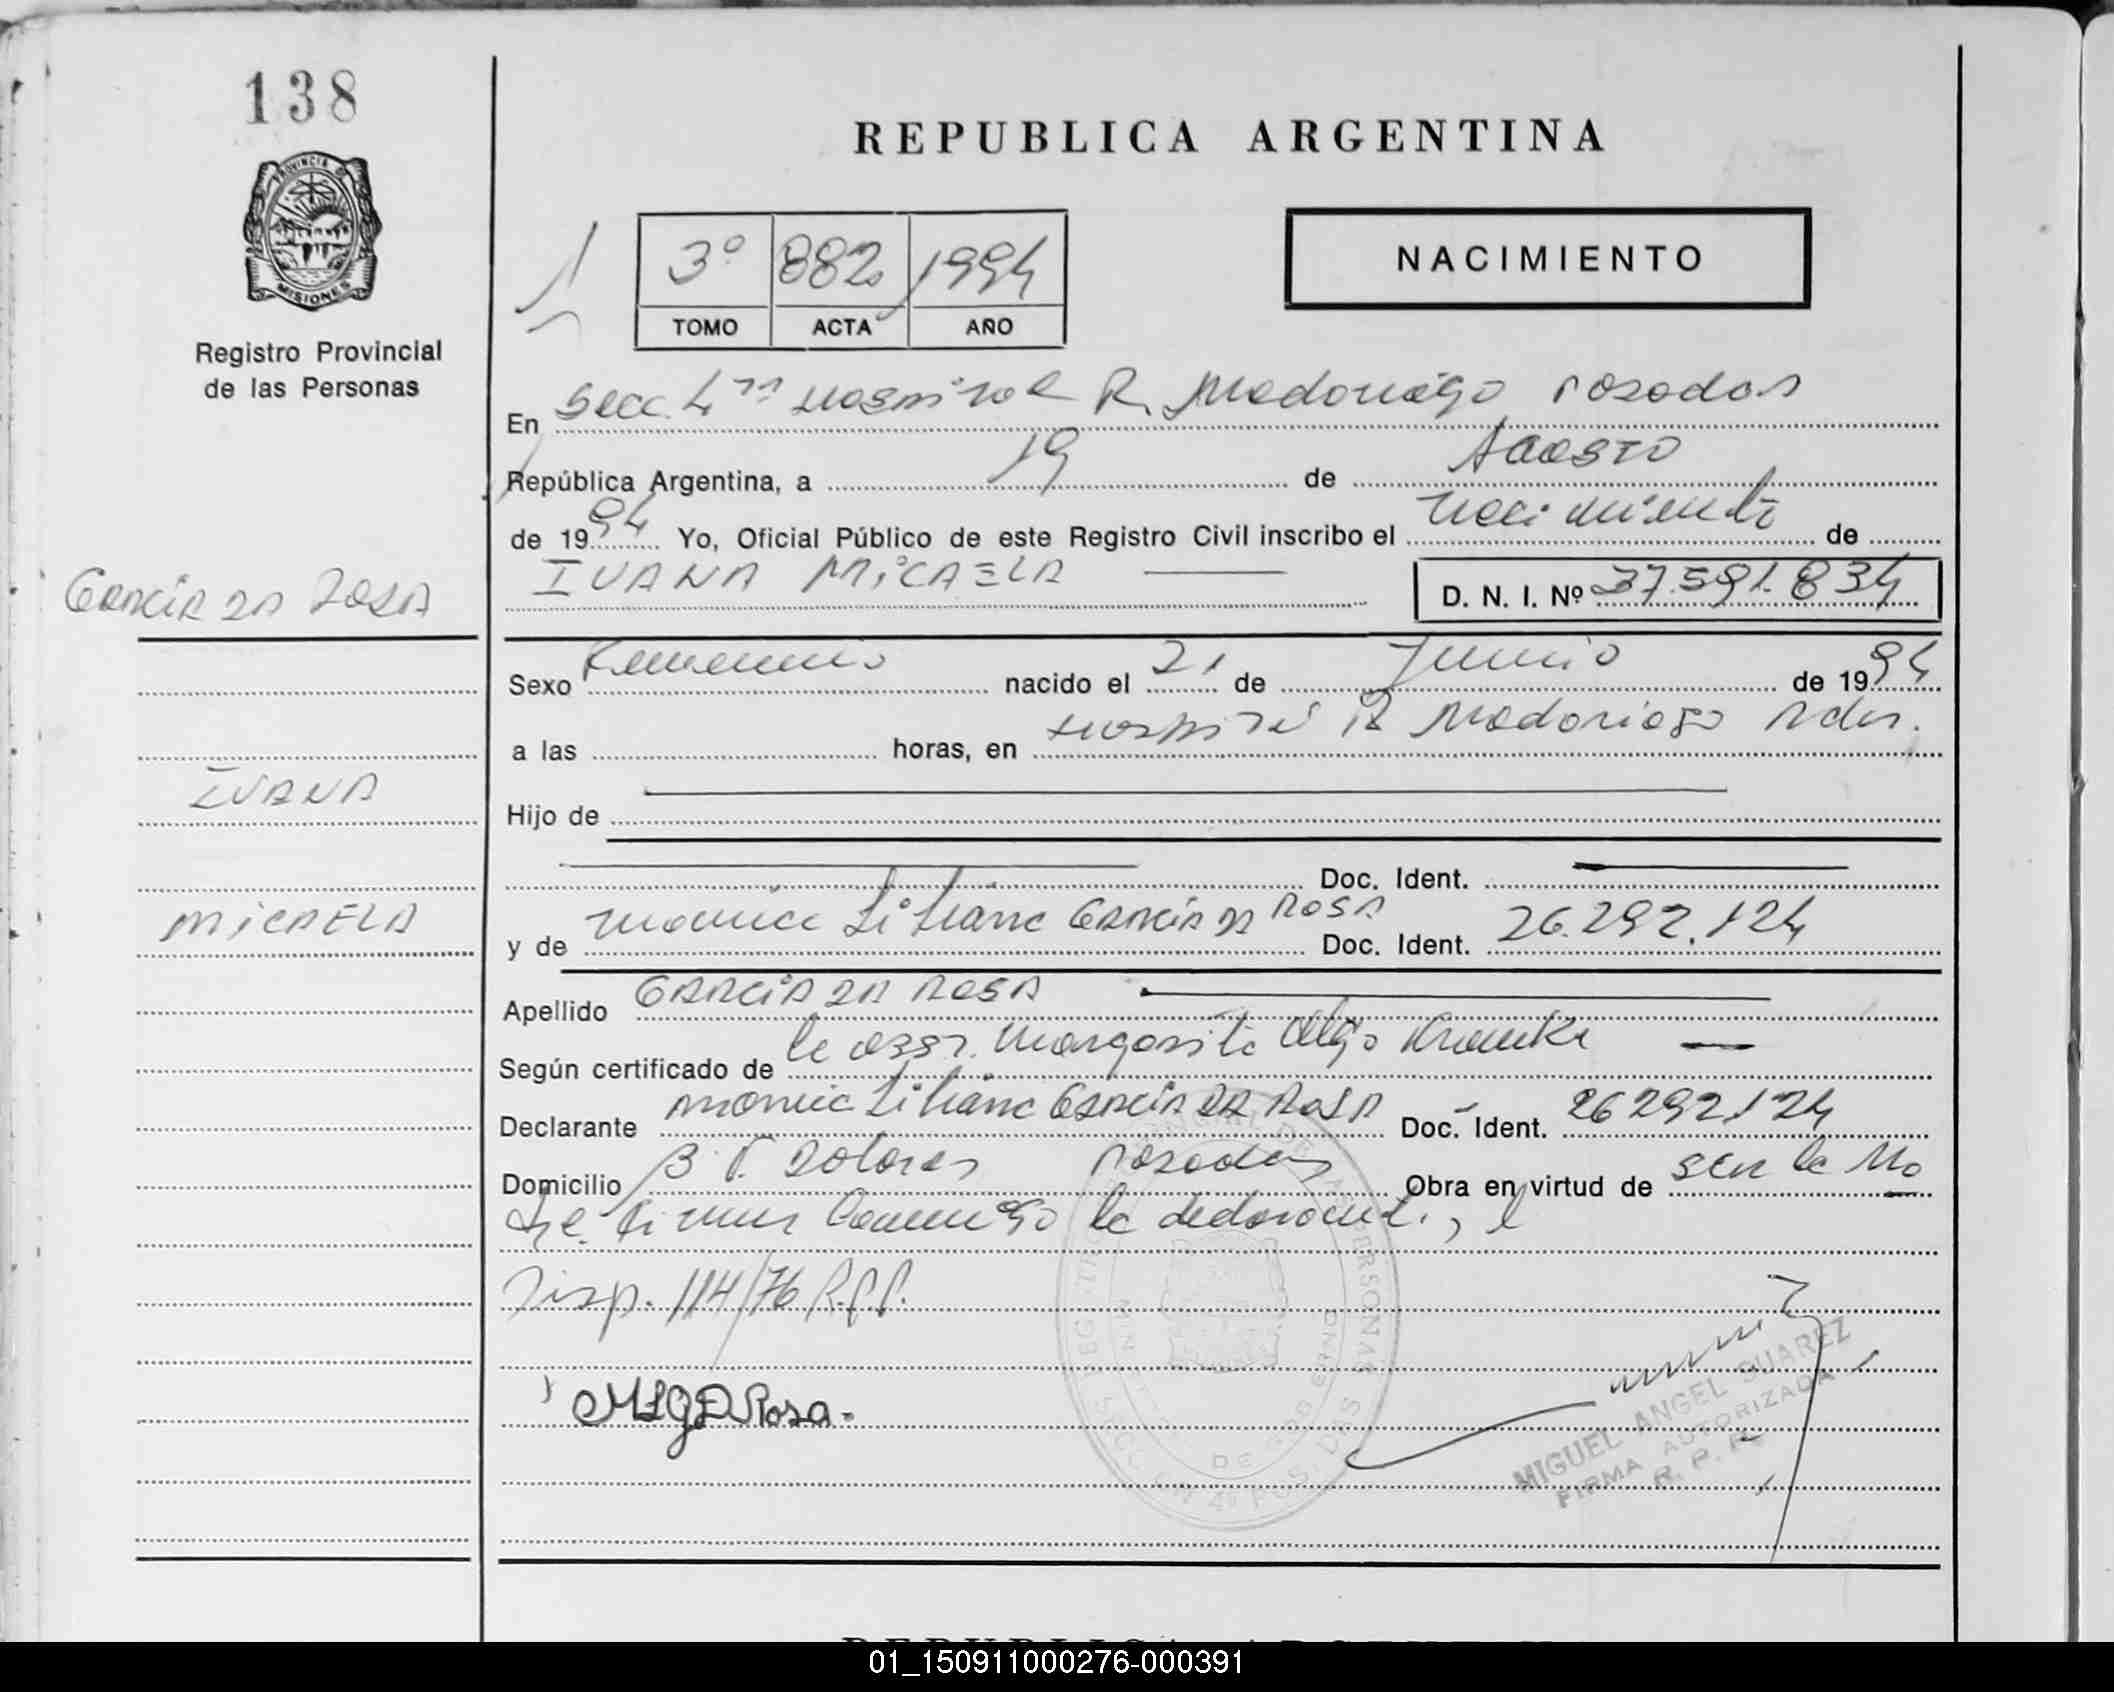 138
REPUBLICA ARGENTINA
PROVINCIA DE
MISIONES
Registro Provincial
de las Personas
3º 882 1994
TOMO ACTA AÑO
NACIMIENTO
En Secc. 4ta Hospital R. Madariaga Posadas
República Argentina, a 19 de Agosto
de 1994 Yo, Oficial Público de este Registro Civil inscribo el nacimiento de
IVANA MICAELA
D. N. I. Nº 37.591.834
GARCIA DA ROSA
Sexo Femenino nacido el 21 de Junio de 1994
a las horas, en Hospital R Madariaga Pdas.
IVANA
Hijo de
Doc. Ident.
MICAELA
y de Monica Liliana GARCIA DA ROSA Doc. Ident. 26.292.124
Apellido GARCIA DA ROSA
Según certificado de la Margarita Olga
Declarante Monica Liliana GARCIA DA ROSA Doc. Ident. 26292124
Domicilio B. Dolores Posadas Obra en virtud de ser la Ma
dre. Firma conmigo la declarante,
Disp. 114/76 R.P.P.
MLGDRosa.
MIGUEL ANGEL SUAREZ
FIRMA AUTORIZADA
R. P. P.
01_150911000276-000391